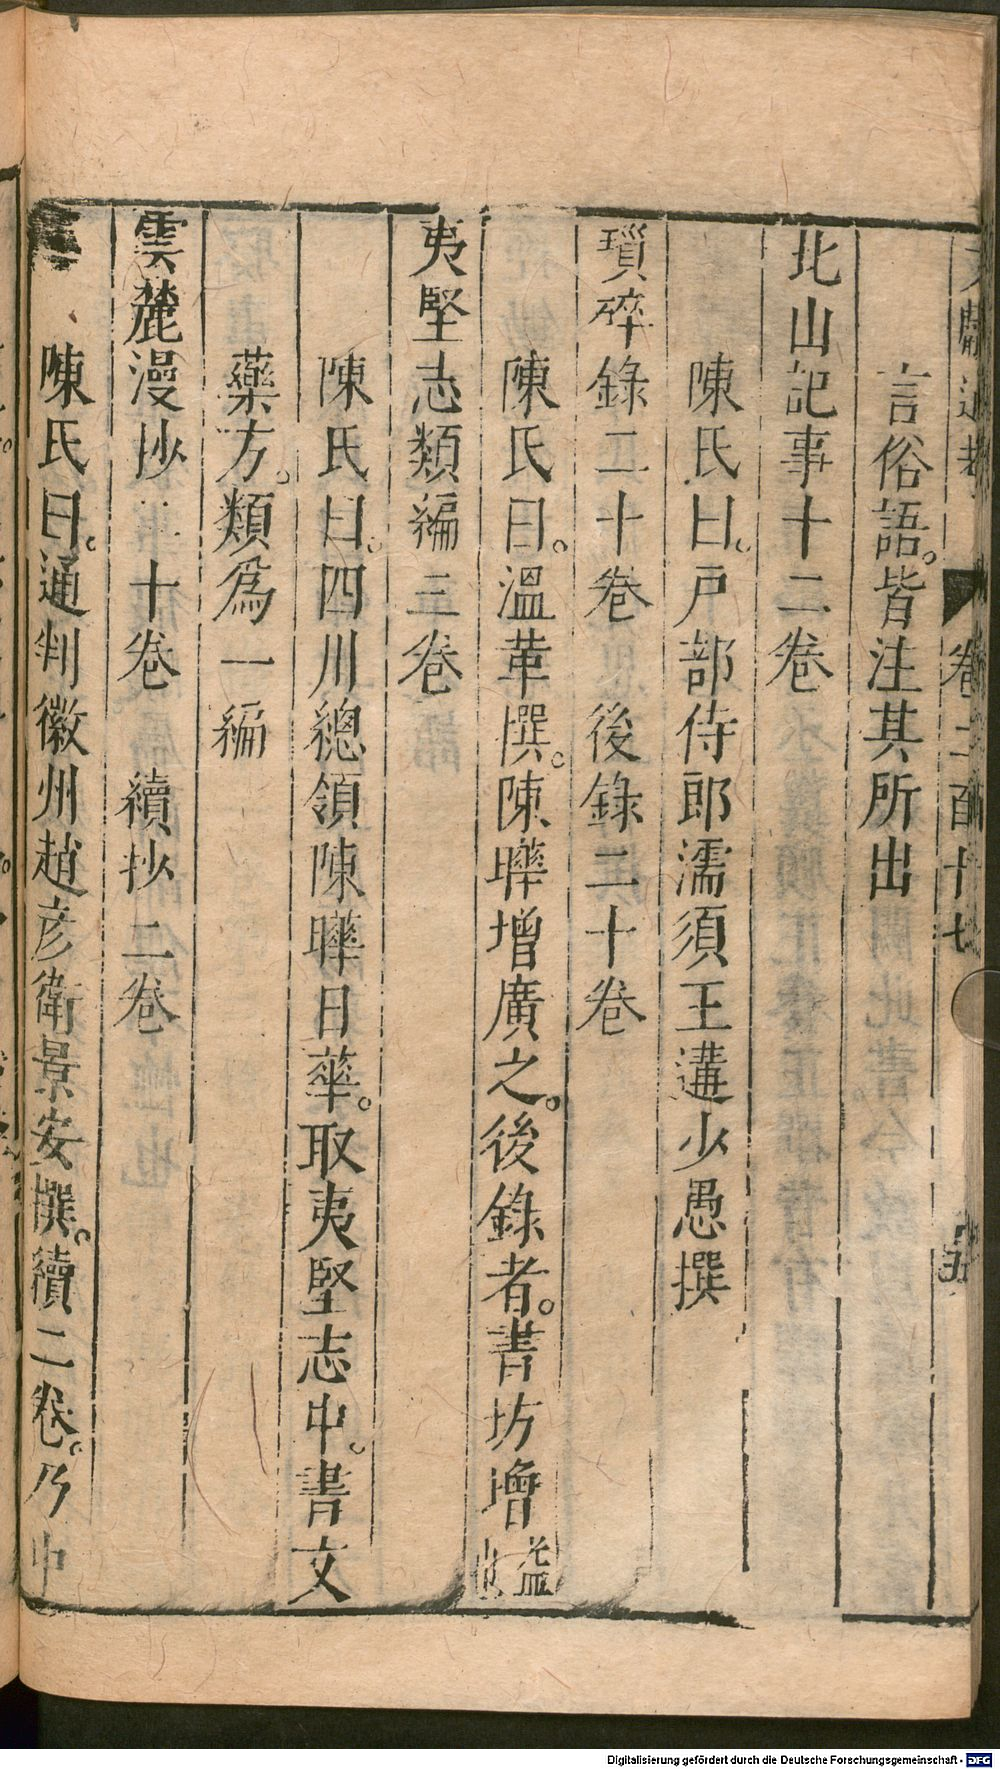 文獻通考 卷二百十七 五
言俗語。皆注其所出
北山記事十二卷
陳氏曰。戸部侍郎濡須王遘少愚撰
瑣碎錄二十卷 後錄二十卷
陳氏曰。溫革撰。陳曄增廣之。後錄者。書坊增益也
夷堅志類編三卷
陳氏曰。四川總領陳曄日華。取夷堅志中。書文
藥方。類爲一編
雲麓漫抄二十卷 續抄二卷
陳氏曰。通判徽州趙彦衛景安撰。續二卷。乃中
Digitalisierung gefördert durch die Deutsche Forschungsgemeinschaft - DFG